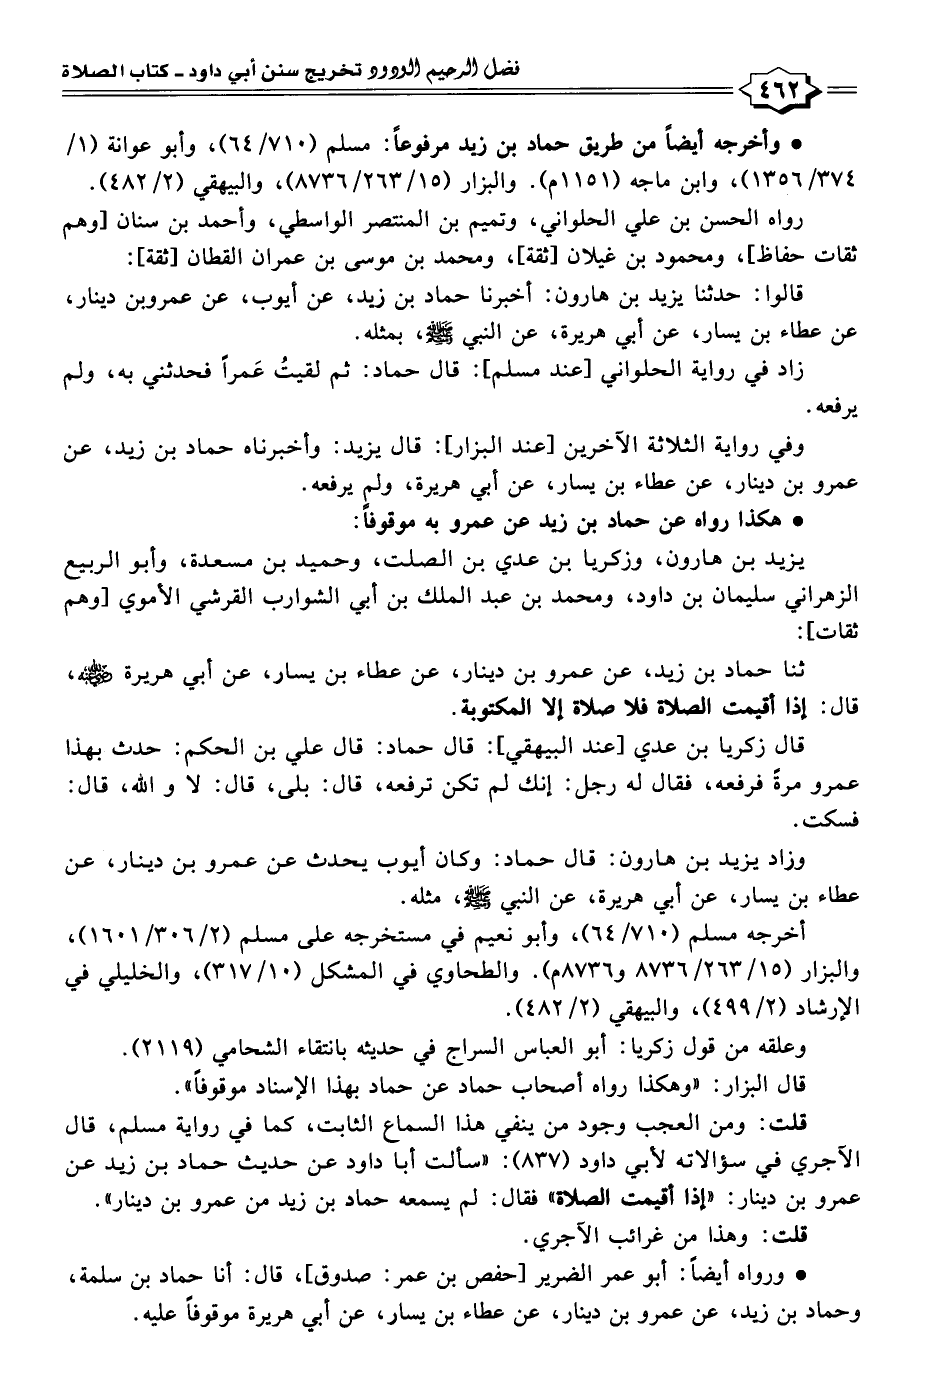 فضل الرحيم الودود تخريج سنن أبي داود - كتاب الصلاة
٤٦٢
• وأخرجه أيضاً من طريق حماد بن زيد مرفوعاً: مسلم (٦٤/٧١٠)، وأبو عوانة (١/
١٣٥٦/٣٧٤)، وابن ماجه (١١٥١م). والبزار (٨٧٣٦/٢٦٣/١٥)، والبيهقي (٤٨٢/٢).
رواه الحسن بن علي الحلواني، وتميم بن المنتصر الواسطي، وأحمد بن سنان [وهم
ثقات حفاظ]، ومحمود بن غيلان [ثقة]، ومحمد بن موسى بن عمران القطان [ثقة]:
قالوا: حدثنا يزيد بن هارون: أخبرنا حماد بن زيد، عن أيوب، عن عمروبن دينار،
عن عطاء بن يسار، عن أبي هريرة، عن النبي ﷺ، بمثله.
زاد في رواية الحلواني [عند مسلم]: قال حماد: ثم لقيتُ عَمراً فحدثني به، ولم
يرفعه.
وفي رواية الثلاثة الآخرين [عند البزار]: قال يزيد: وأخبرناه حماد بن زيد، عن
عمرو بن دينار، عن عطاء بن يسار، عن أبي هريرة، ولم يرفعه.
• هكذا رواه عن حماد بن زيد عن عمرو به موقوفاً:
يزيد بن هارون، وزكريا بن عدي بن الصلت، وحميد بن مسعدة، وأبو الربيع
الزهراني سليمان بن داود، ومحمد بن عبد الملك بن أبي الشوارب القرشي الأموي [وهم
ثقات]:
ثنا حماد بن زيد، عن عمرو بن دينار، عن عطاء بن يسار، عن أبي هريرة رضي الله عنه،
قال: إذا أقيمت الصلاة فلا صلاة إلا المكتوبة.
قال زكريا بن عدي [عند البيهقي]: قال حماد: قال علي بن الحكم: حدث بهذا
عمرو مرةً فرفعه، فقال له رجل: إنك لم تكن ترفعه، قال: بلى، قال: لا و الله، قال:
فسكت.
وزاد يزيد بن هارون: قال حماد: وكان أيوب يحدث عن عمرو بن دينار، عن
عطاء بن يسار، عن أبي هريرة، عن النبي ﷺ، مثله.
أخرجه مسلم (٦٤/٧١٠)، وأبو نعيم في مستخرجه على مسلم (١٦٠١/٣٠٦/٢)،
والبزار (٨٧٣٦/٢٦٣/١٥ و٨٧٣٦م). والطحاوي في المشكل (٣١٧/١٠)، والخليلي في
الإرشاد (٤٩٩/٢)، والبيهقي (٤٨٢/٢).
وعلقه من قول زكريا: أبو العباس السراج في حديثه بانتقاء الشحامي (٢١١٩).
قال البزار: «وهكذا رواه أصحاب حماد عن حماد بهذا الإسناد موقوفاً».
قلت: ومن العجب وجود من ينفي هذا السماع الثابت، كما في رواية مسلم، قال
الآجري في سؤالاته لأبي داود (٨٣٧): «سألت أبا داود عن حديث حماد بن زيد عن
عمرو بن دينار: «إذا أقيمت الصلاة» فقال: لم يسمعه حماد بن زيد من عمرو بن دينار».
قلت: وهذا من غرائب الآجري.
• ورواه أيضاً: أبو عمر الضرير [حفص بن عمر: صدوق]، قال: أنا حماد بن سلمة،
وحماد بن زيد، عن عمرو بن دينار، عن عطاء بن يسار، عن أبي هريرة موقوفاً عليه.